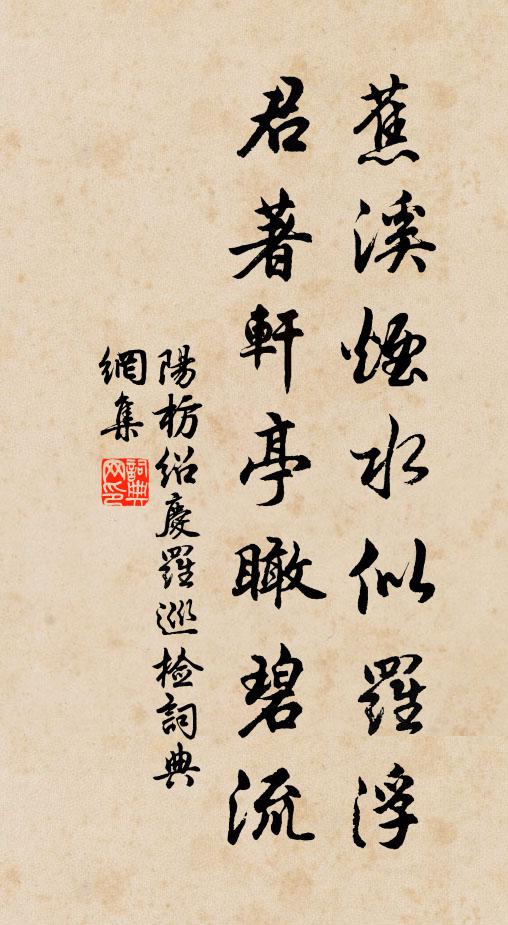 蕉溪煙水似羅浮
君著軒亭瞰碧流
陽枋紹慶羅巡檢詞典
網集
詞典网印